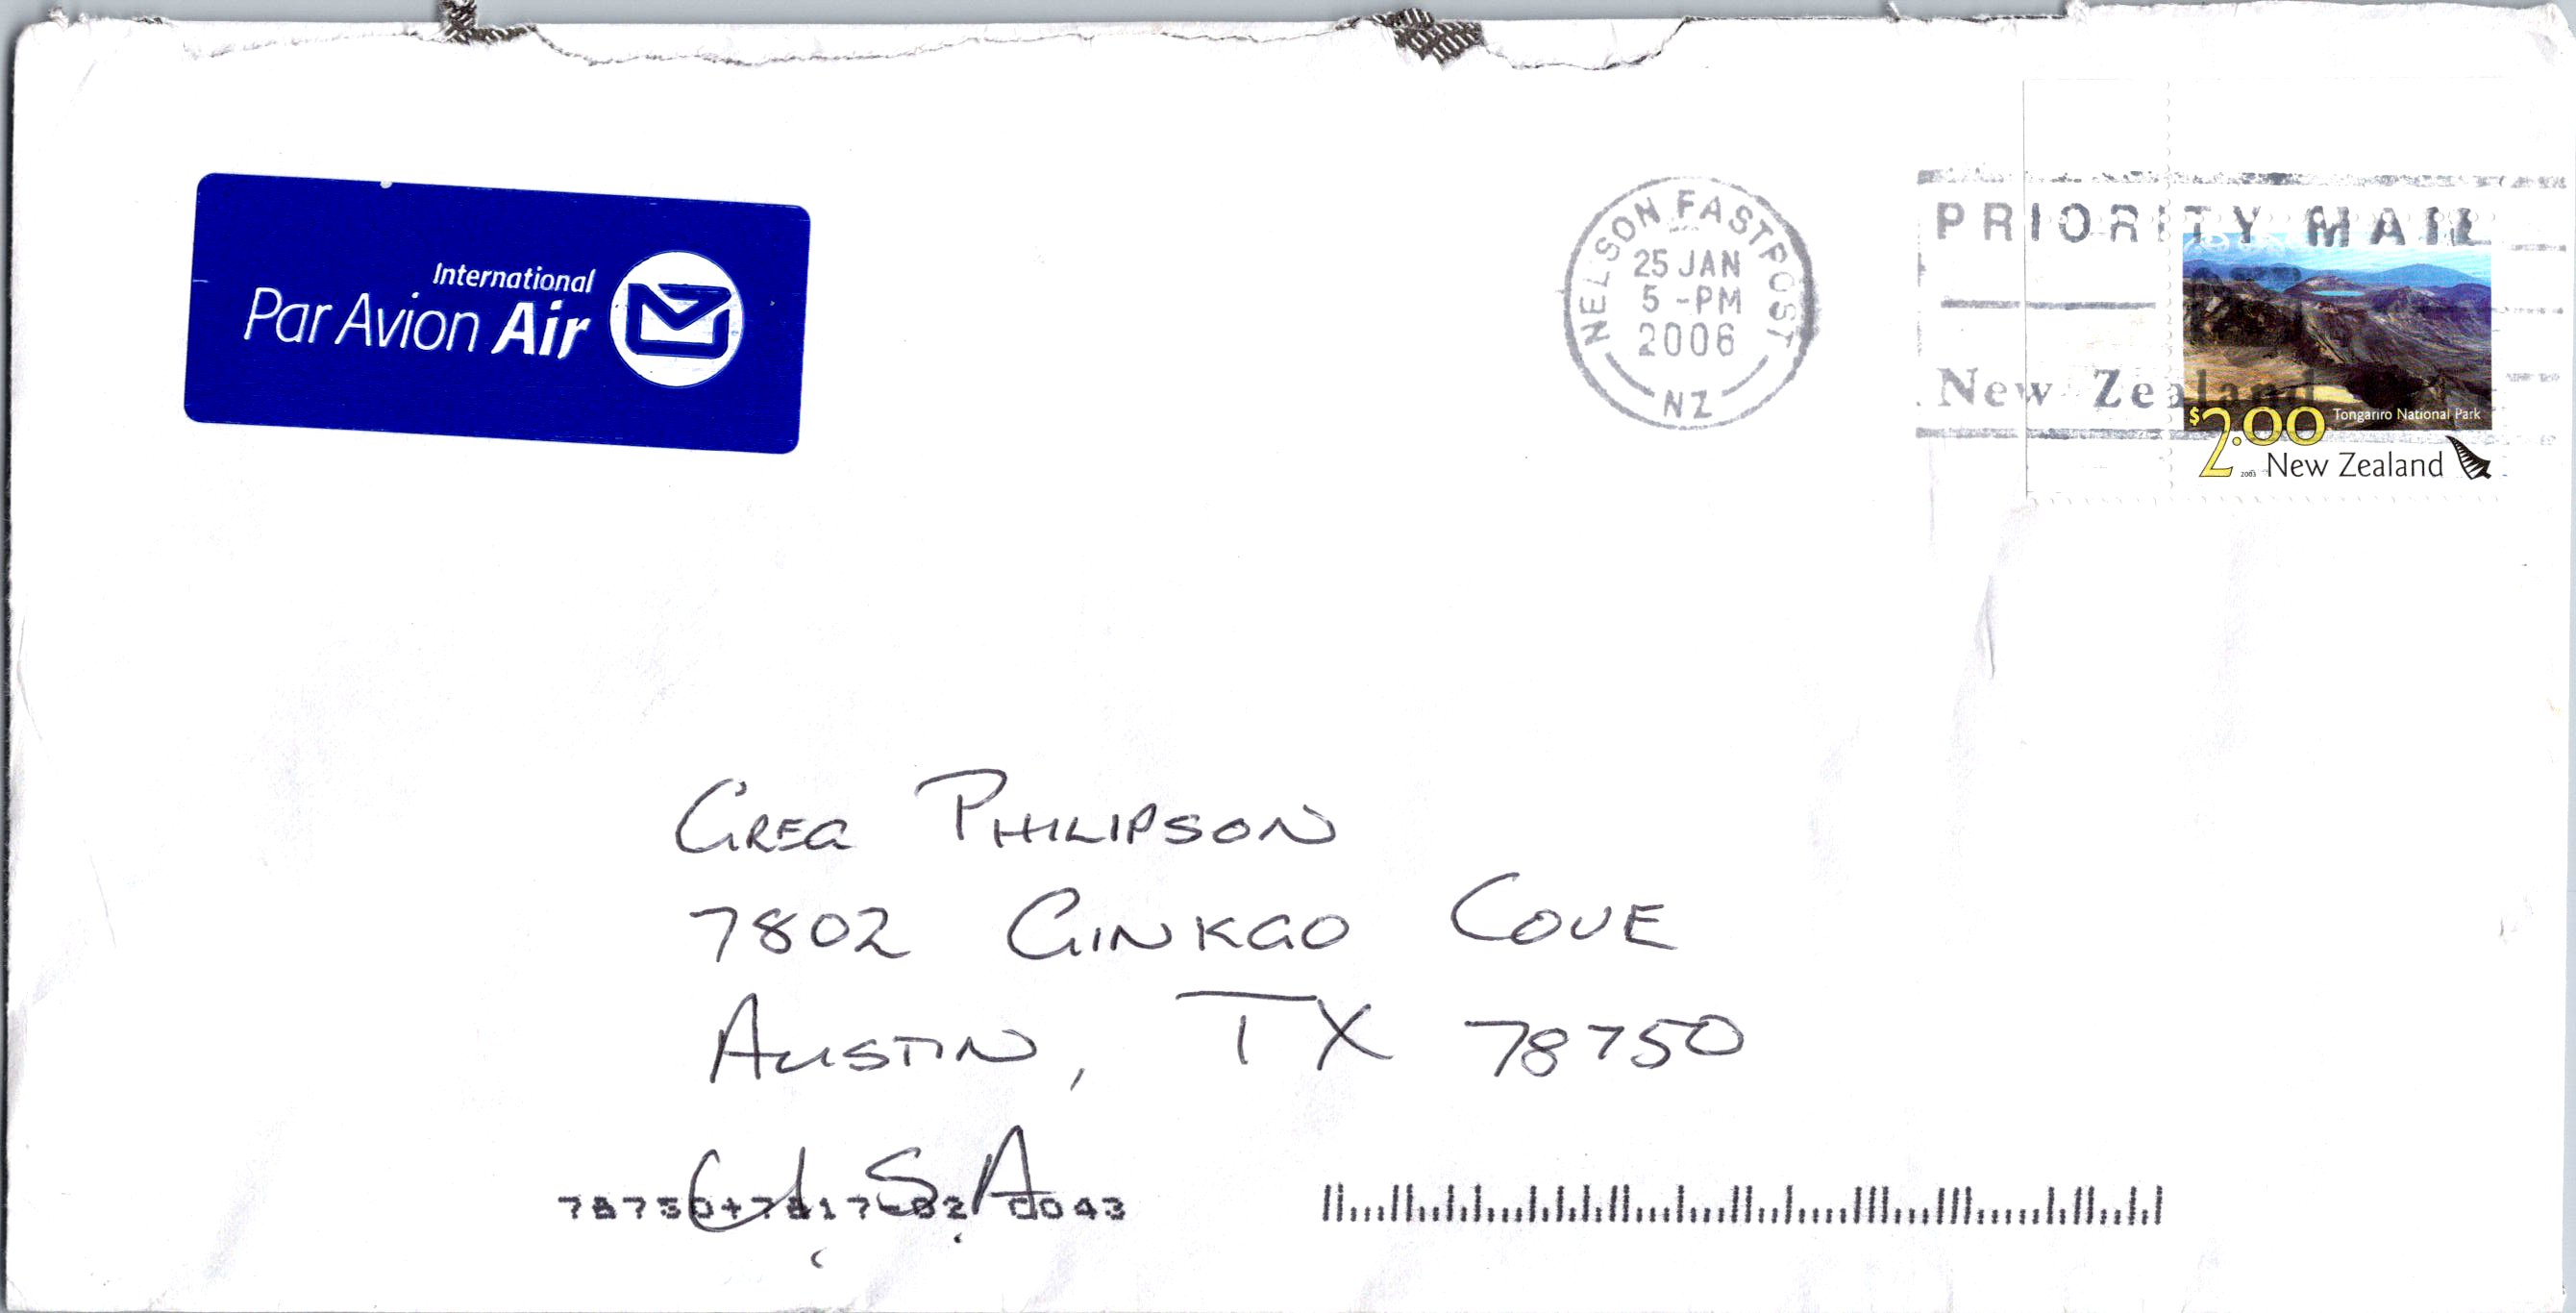 International
Par Avion Air
NELSON FASTPOST
25 JAN
5 -PM
2006
NZ
PRIORITY MAIL
New Zealand
$2.00 Tongariro National Park
2003 New Zealand
GREG PHILIPSON
7802 GINKGO COVE
AUSTIN, TX 78750
U.S.A
78750+7817-02 C043